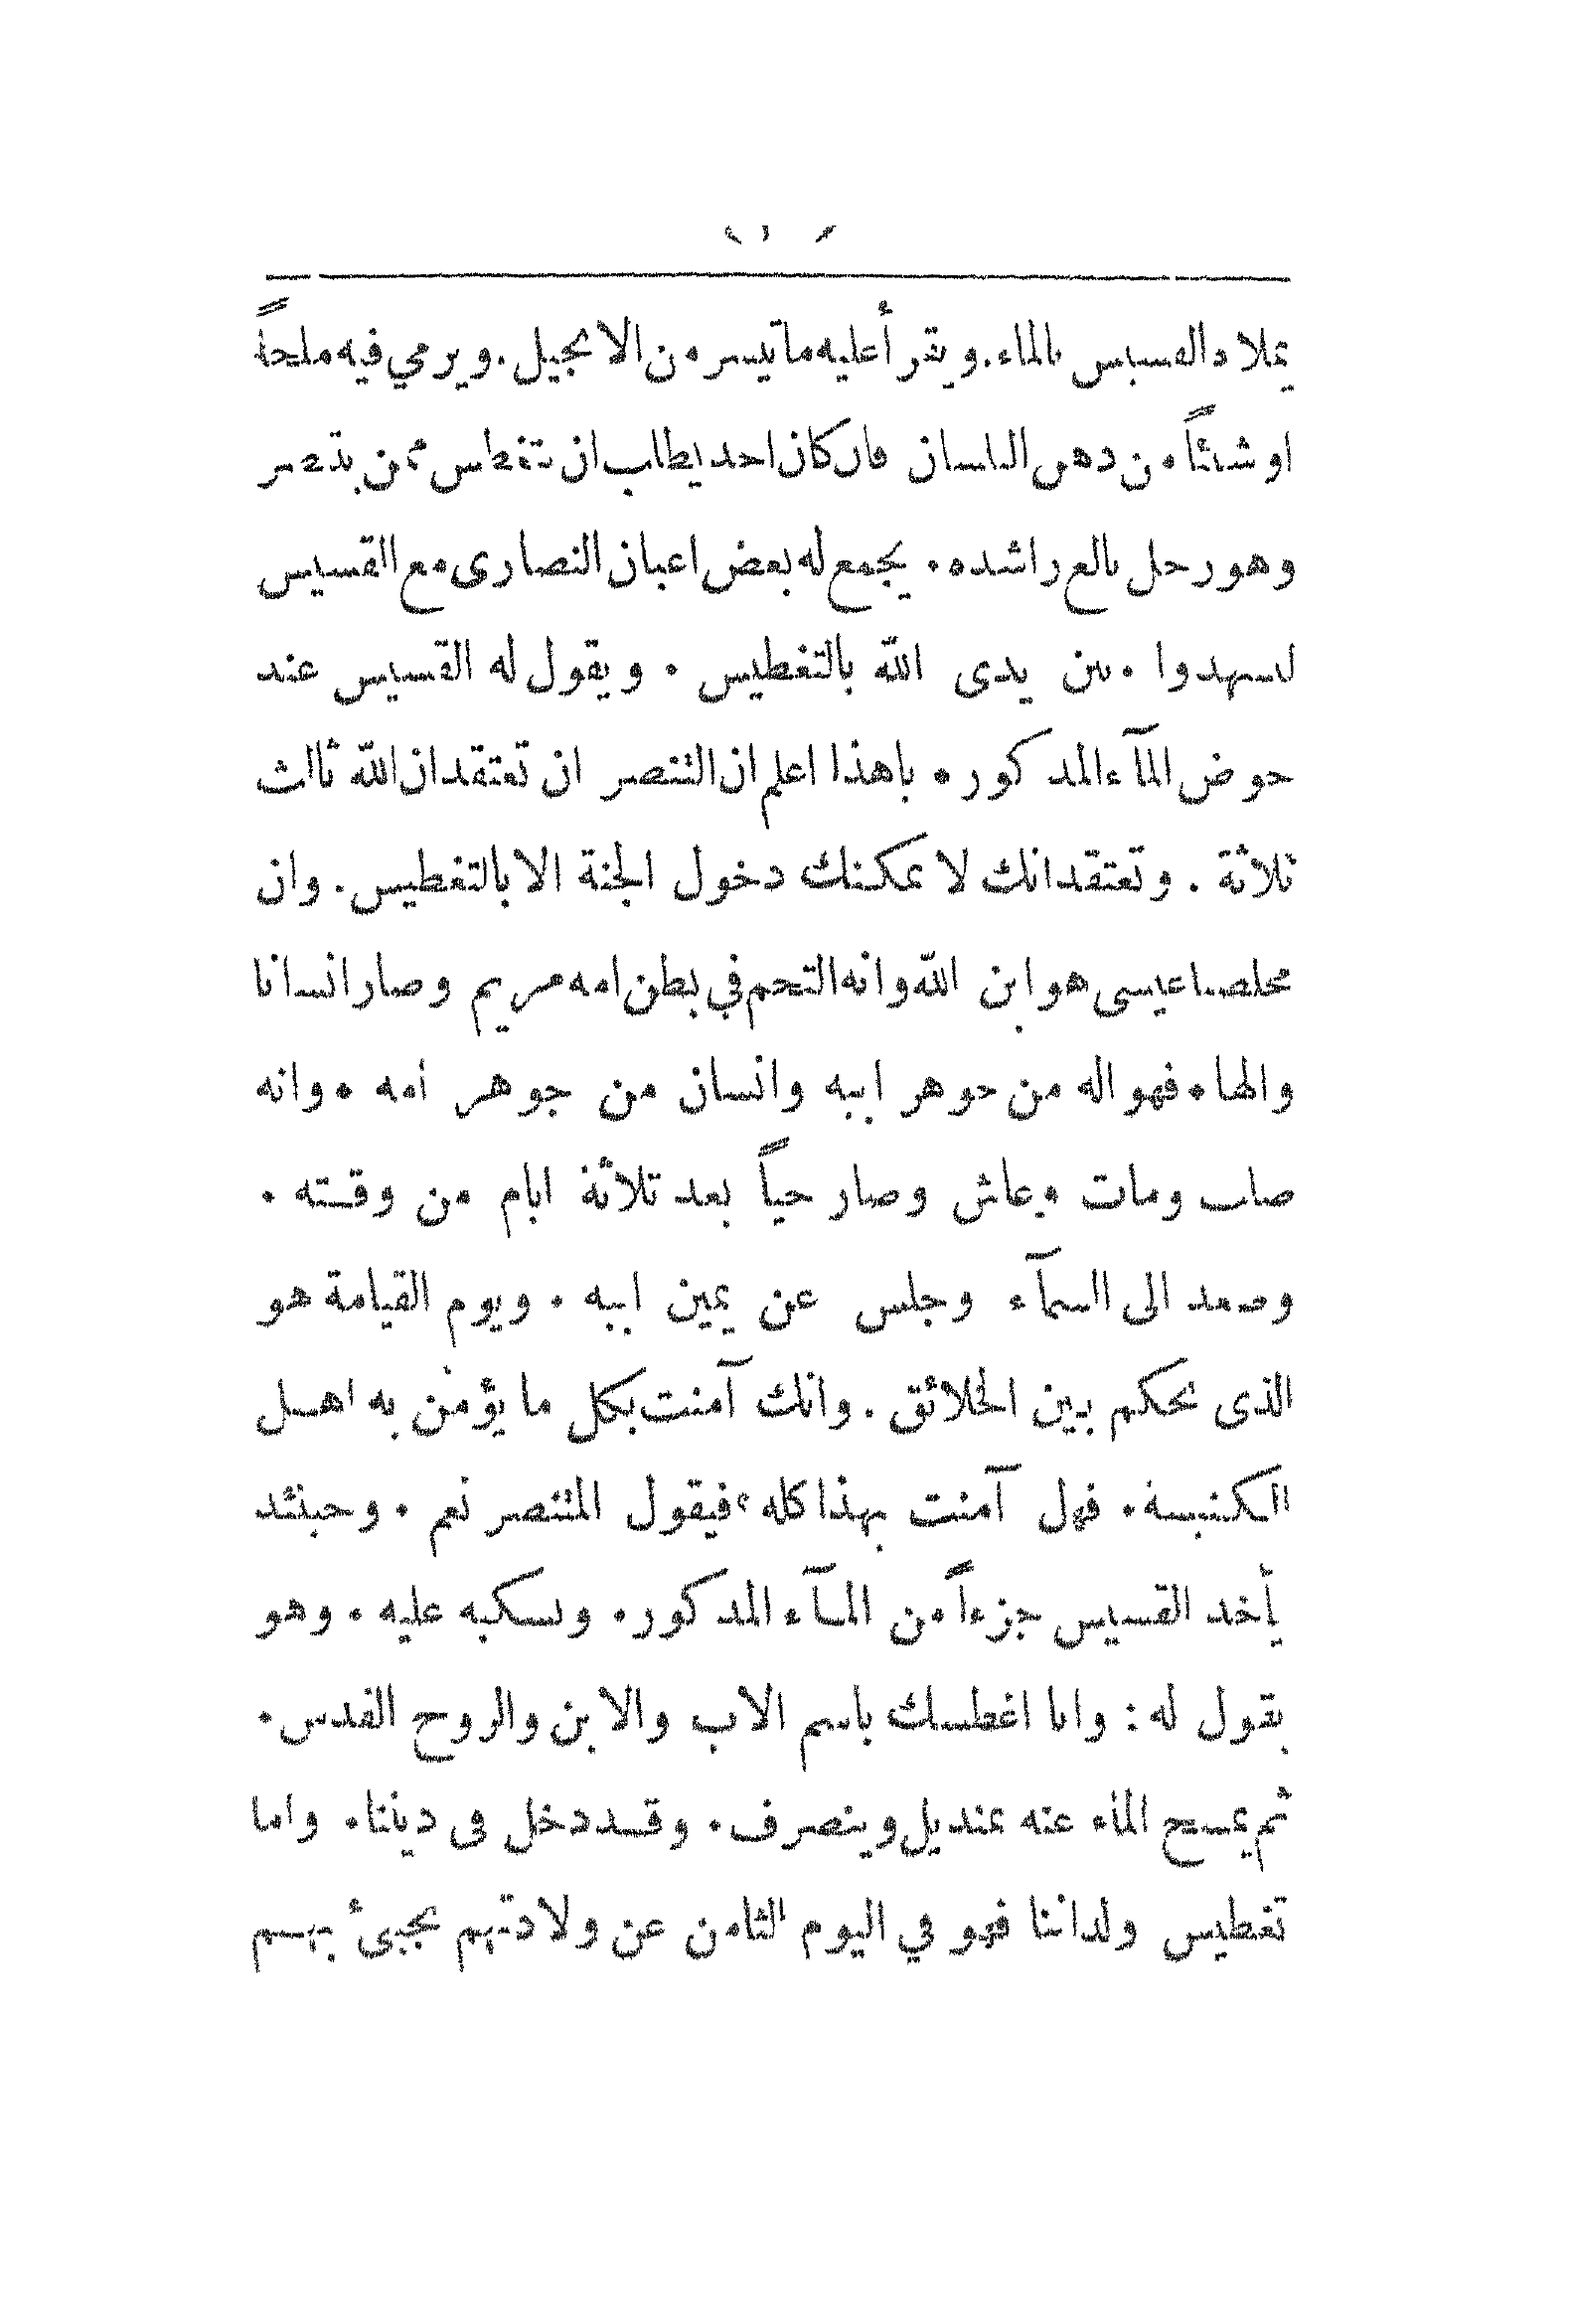 يملاه القسيس بالماء. ويقرأ عليه ما تيسر من الانجيل. ويرمي فيه ملحاً
او شيئاً من دهن البلسان فان كان احد يطلب ان يتغطس ممن يتنصر
وهو رجل بالغ راشده. يجمع له بعض اعيان النصارى مع القسيس
ليشهدوا . بين يدى الله بالتغطيس . ويقول له القسيس عند
حوض المآء المذكور. ياهذا اعلم ان التنصر ان تعتقد ان الله ثالث
ثلاثة . وتعتقد انك لا يمكنك دخول الجنة الا بالتغطيس. وان
مخلصنا عيسى هو ابن الله وانه التحم في بطن امه مريم وصار انسانا
والها. فهو اله من جوهر ابيه وانسان من جوهر امه . وانه
صلب ومات وعاش وصار حياً بعد ثلاثة ايام من وقته .
وصعد الى السمآء وجلس عن يمين ابيه . ويوم القيامة هو
الذى يحكم بين الخلائق . وانك آمنت بكل ما يؤمن به اهل
الكنيسة. فهل آمنت بهذا كله ؟ فيقول المتنصر نعم . وحينئذ
يأخذ القسيس جزءاً من المآء المذكور. ويسكبه عليه . وهو
يقول له : وانا اغطسك باسم الاب والابن والروح القدس.
ثم يمسح الماء عنه بمنديل وينصرف. وقد دخل فى ديننا. واما
تغطيس ولداننا فهو في اليوم الثامن عن ولادتهم يجيئ بهم